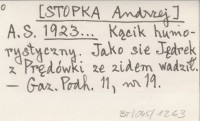 [STOPKA Andrzej]
A.S. 1923... Kącik humo-
rystyczny. Jako sie Jędrek
z Prędówki ze zidem wadził.
— Gaz. Podh. 11, nr 19.